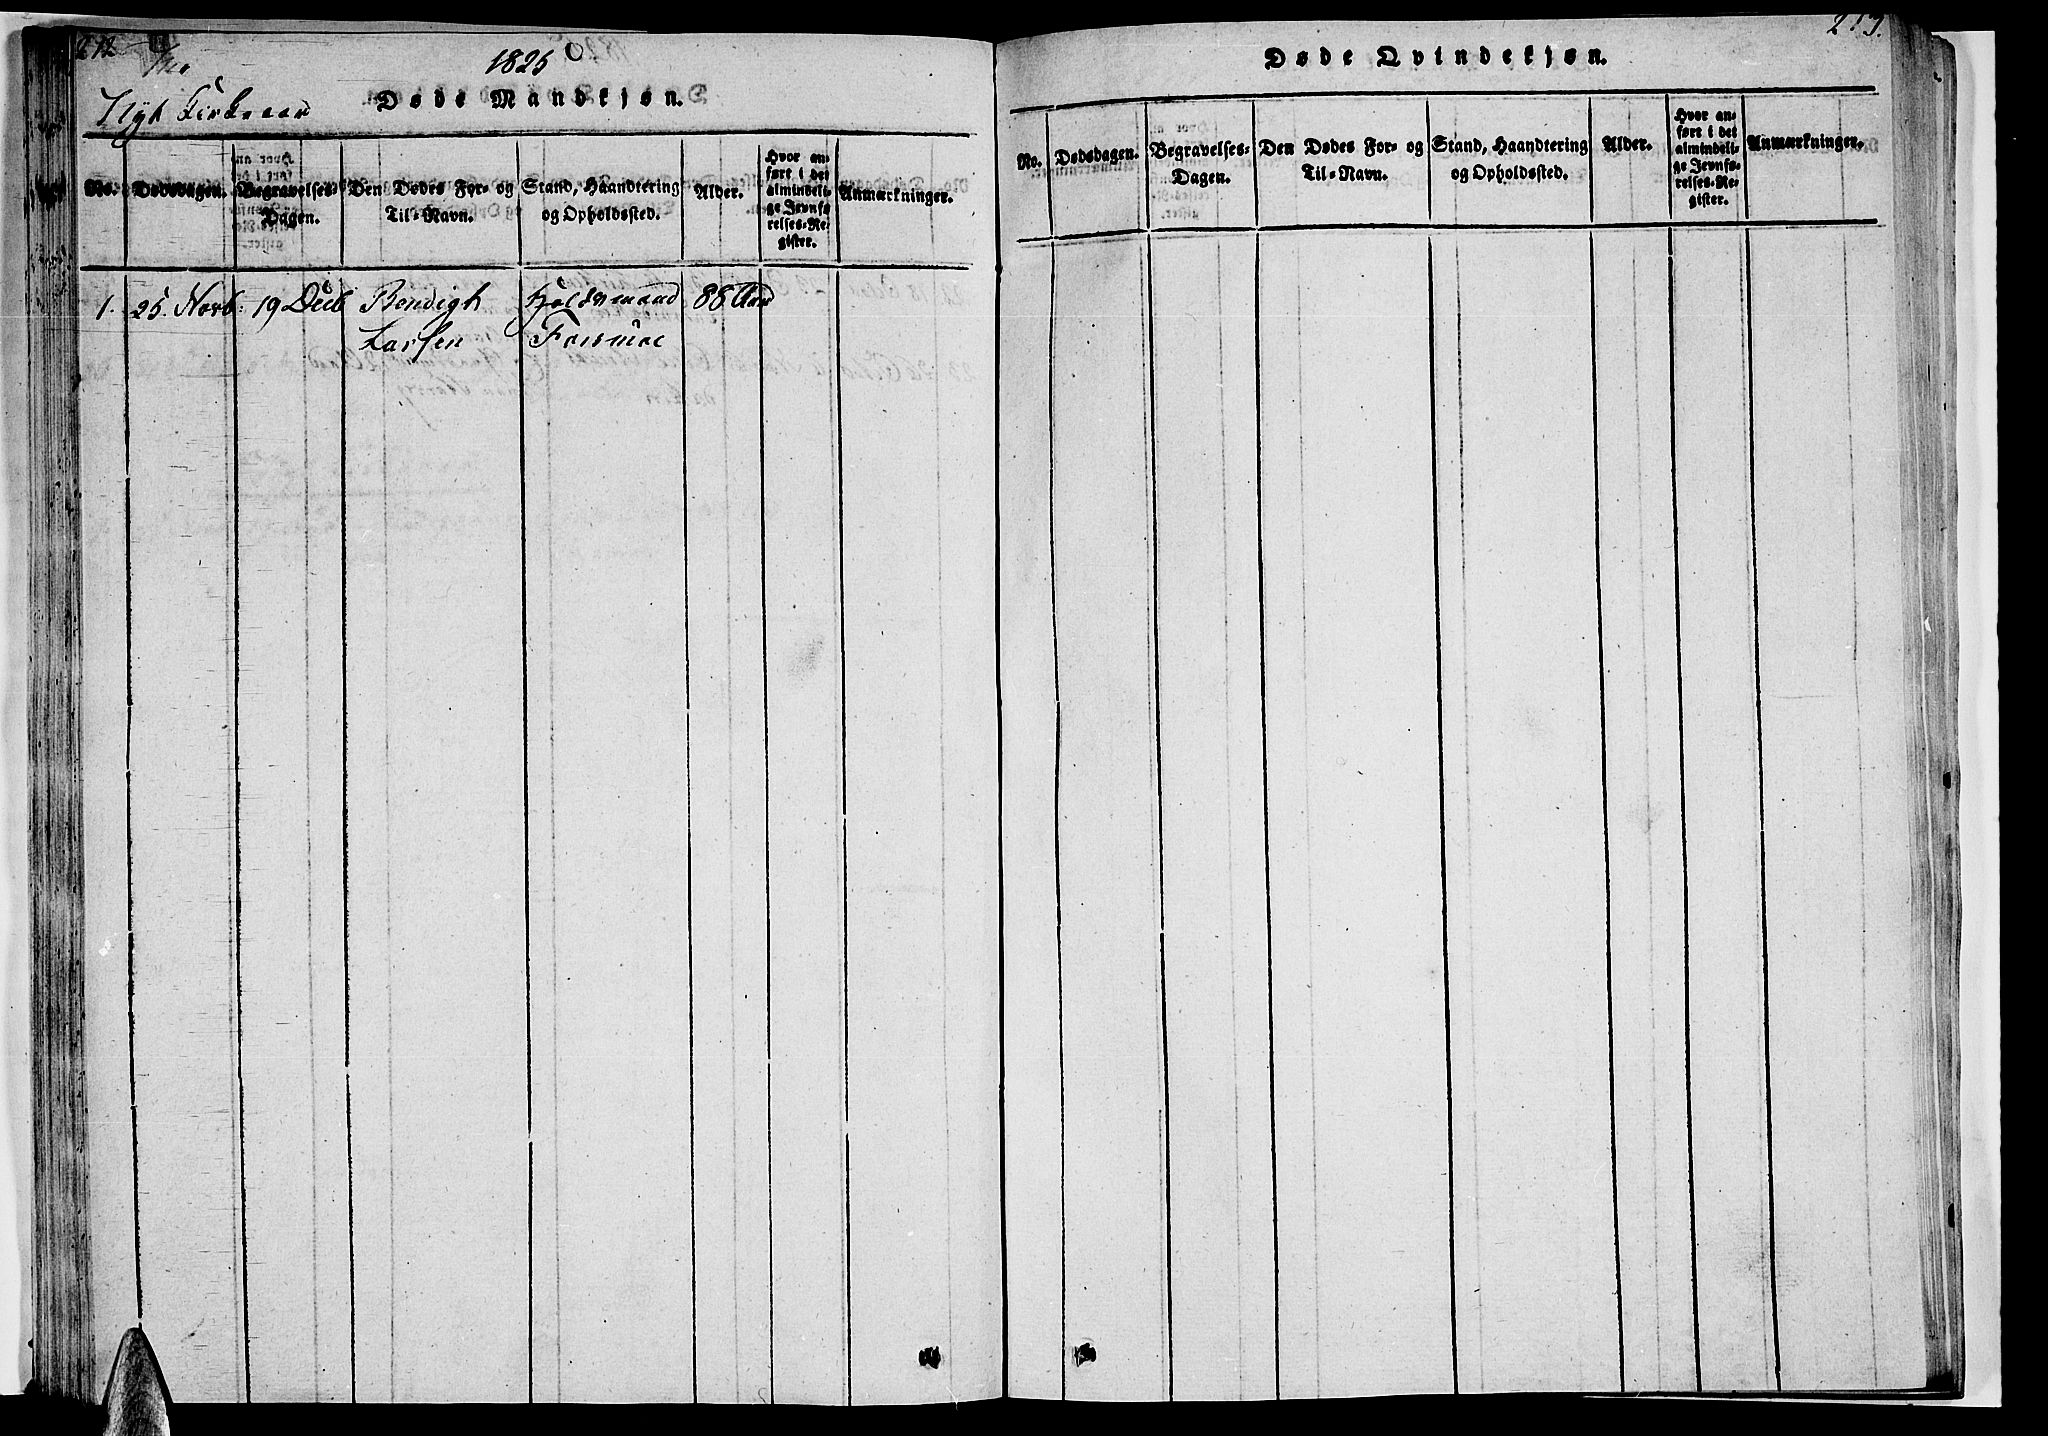 212
1825
Nyt Kirkeaar
Døde Mandkjøn.
No.
Dødsdagen.
Begravelses-
Dagen.
Den Dødes For- og
Til-Navn.
Stand, Haandtering
og Opholdssted.
Alder.
Hvor an-
ført i det
almindeli-
ge Jevnfø-
relses-Re-
gister.
Anmærkninger.
1. 25. Novb. 19 Decb Bendigt Huusmand 88 Aar
Larsen Forsmoe
213.
Døde Qvindekjøn.
No.
Dødsdagen.
Begravelses-
Dagen.
Den Dødes For- og
Til-Navn.
Stand, Haandtering
og Opholdssted.
Alder.
Hvor an-
ført i det
almindeli-
ge Jevnfø-
relses-Re-
gister.
Anmærkninger.